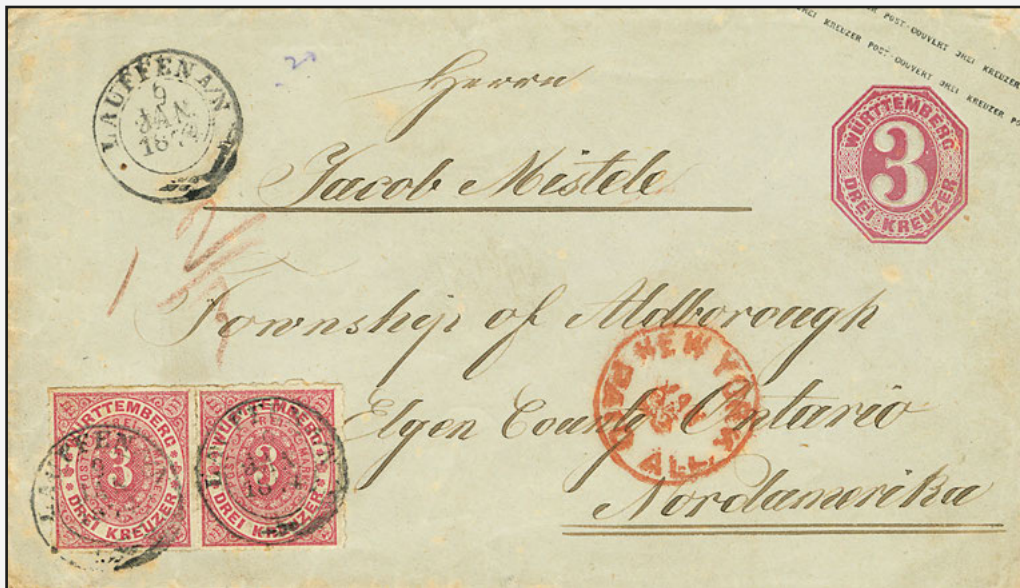 POST-COUVERT DREI KREUZER
KREUZER POST-COUVERT DREI KREUZER
LAUFFEN A/N
9
JAN
187
Herrn
Jacob Mistele
WÜRTTEMBERG
3
DREI KREUZER
Township of Aldborough
NEW YORK
PAID ALL
Elgen County Ontario
Nordamerika
WÜRTTEMBERG
3
DREI KREUZER
WÜRTTEMBERG
3
DREI KREUZER
LAUFFEN